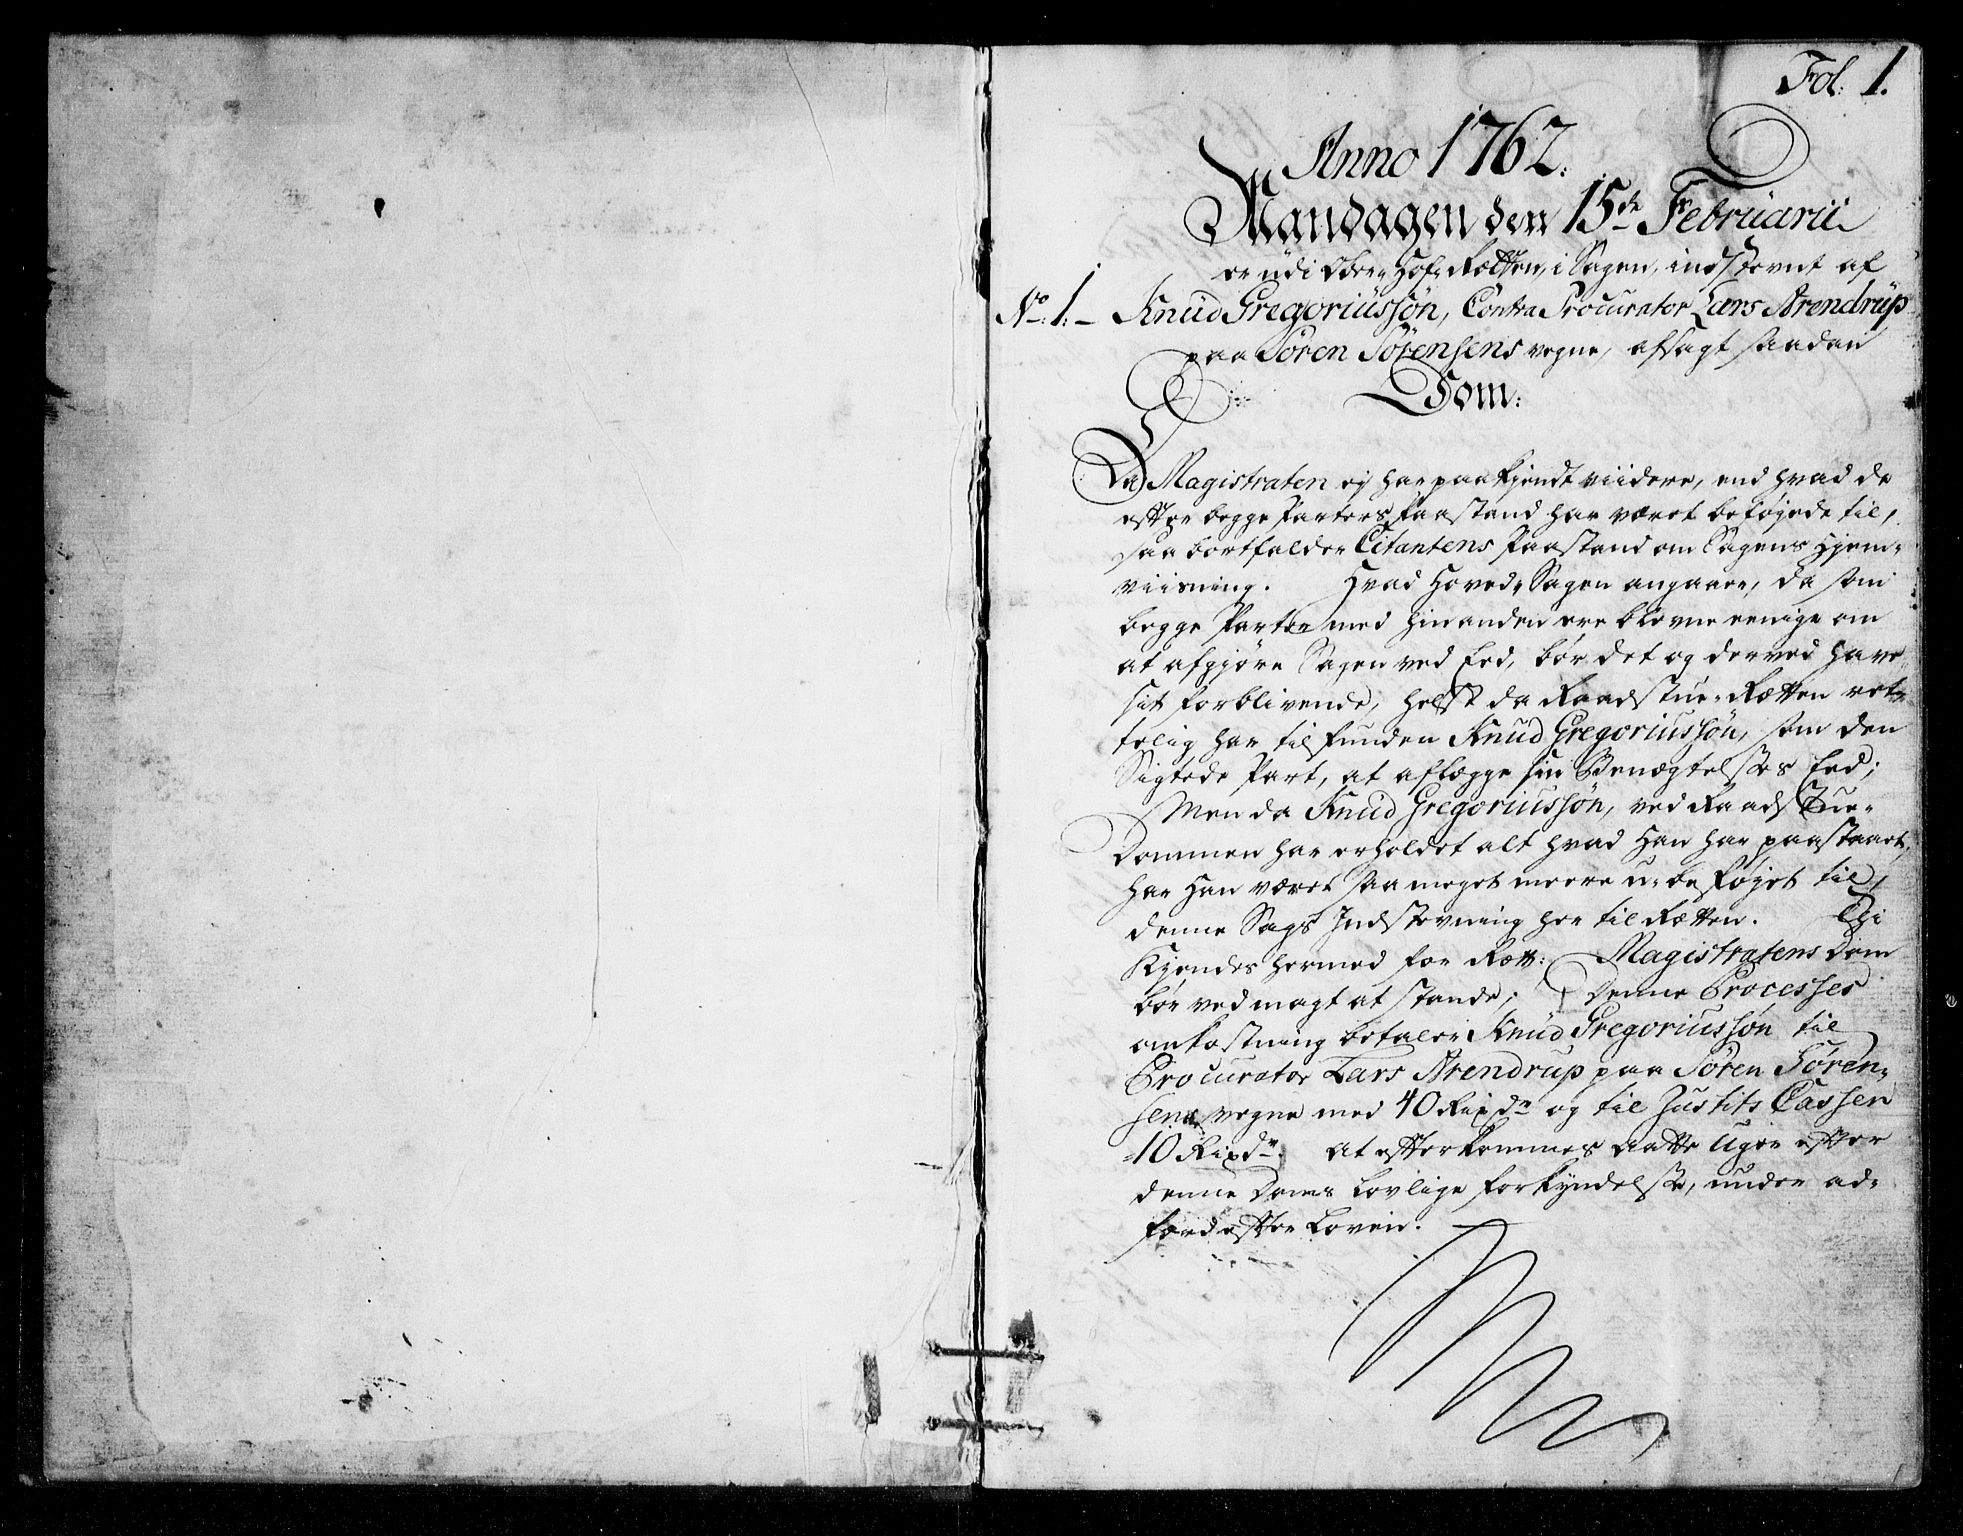 Fol: 1.
Anno 1762.
Mandagen den 15de Februarii
er udi Ober-Hof-Rætten, i Sagen, indstevnt af
No. 1. Knud Gregoriussøn, Contra Procurator Lars Arendrup
paa Søren Sørensens vegne, afsagt saadan
Dom:
Da Magistraten ej har paakjendt viidere, end hvad de
efter begge Parters Paastand har været beføjede til,
saa bortfalder Citantens Paastand om Sagens Hjem-
viisning. Hvad Hoved-Sagen angaaer, da som
begge Parter med hinanden ere blevne eenige om
at afgjøre Sagen ved Eed, bør det og derved have
sit forblivende, helst da Raadstue-Rætten ret-
telig har tilfunden Knud Gregoriussøn, som den
Sigtede Part, at aflægge sin Benægtelses Eed;
Men da Knud Gregoriussøn, ved Raadstue-
Dommen har erholdet alt hvad Han har paastaaet,
har Han været saa meget meere u-beføjet til
denne Sags Indstevning her til Rætten. Thi
Kjendes hermed for Rætt: Magistratens Dom
bør ved magt at stande; Denne Processes
omkostning betaler Knud Gregoriussøn til
Procurator Lars Arendrup paa Søren Søren-
sens vegne med 40 Rixdr og til Justits Cassen
10 Rixdr. At efterkommes aatte Uger efter
denne Doms lovlige forkyndelse, under ad-
færd efter Loven.